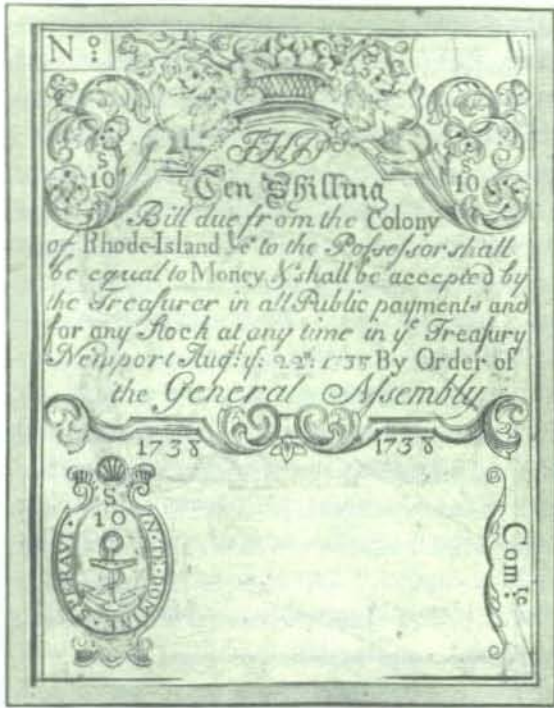 No:
S
10
S
10
THIS
Ten Shilling
Bill due from the Colony
of Rhode-Island &c. to the Possessor shall
be equal to Money & shall be accepted by
the Treasurer in all Public payments and
for any Stock at any time in ye Treasury
Newport Aug: ye: 22d: 1738 By Order of
the General Assembly
1738
1738
S
10
IN TE DOMINE SPERAVI
Comtc